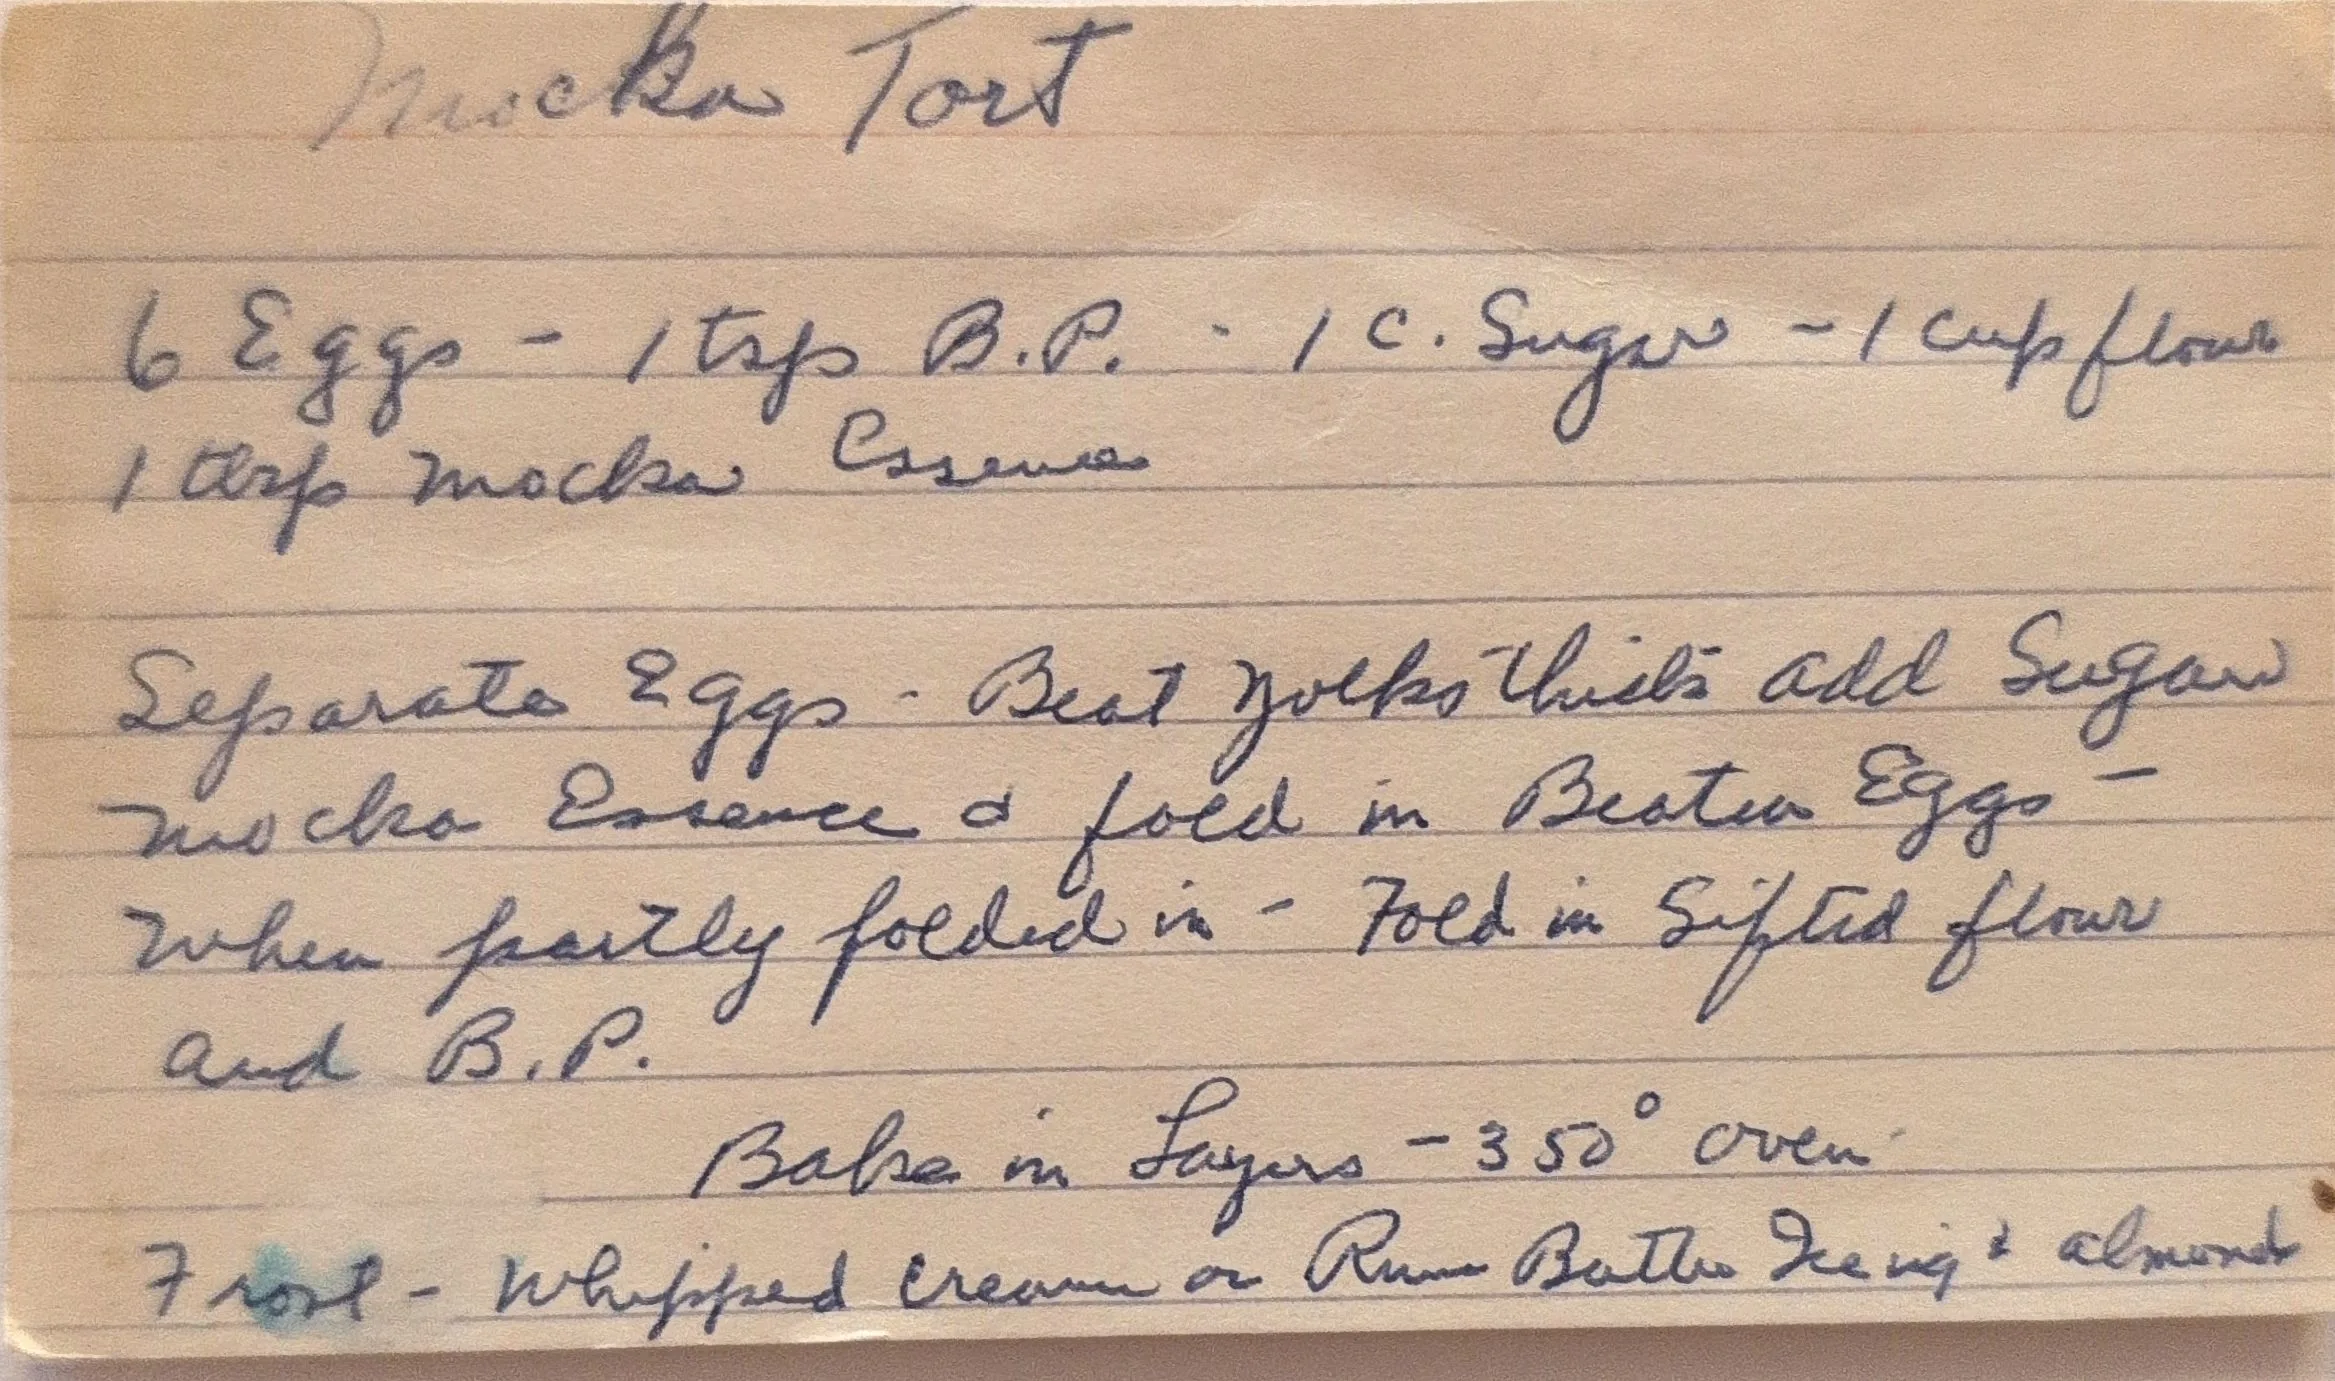 Mocka Tort
6 Eggs - 1 tsp B.P. - 1 C. Sugar - 1 cup flour
1 tbsp mocka Essence
Separate Eggs - Beat yolks thick add Sugar
mocka Essence & fold in Beaten Eggs -
When partly folded in - Fold in Sifted flour
and B.P.
Bake in Layers - 350° oven
Frost - Whipped cream or Rum Butter Iceing & almonds